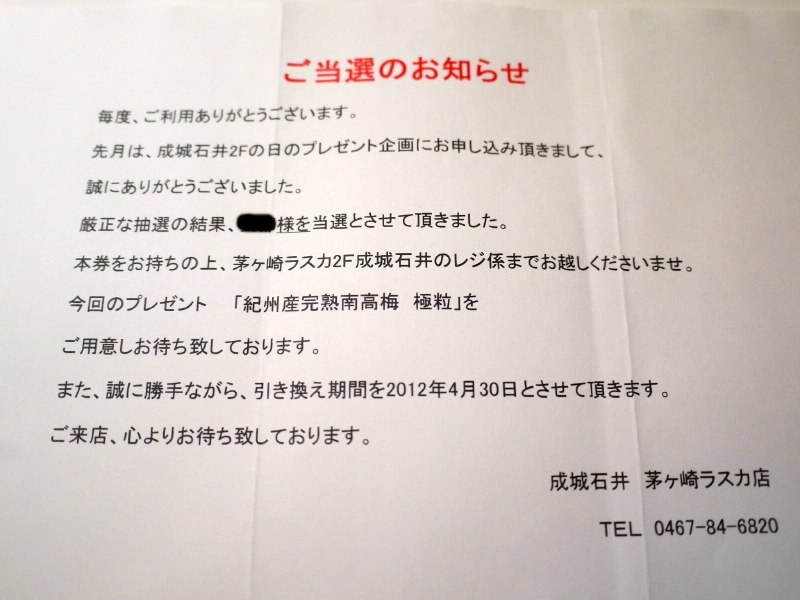 ご当選のお知らせ
毎度、ご利用ありがとうございます。
先月は、成城石井2Fの日のプレゼント企画にお申し込み頂きまして、
誠にありがとうございました。
厳正な抽選の結果、様を当選とさせて頂きました。
本券をお持ちの上、茅ヶ崎ラスカ2F成城石井のレジ係までお越しくださいませ。
今回のプレゼント 「紀州産完熟南高梅 極粒」を
ご用意しお待ち致しております。
また、誠に勝手ながら、引き換え期間を2012年4月30日とさせて頂きます。
ご来店、心よりお待ち致しております。
成城石井 茅ヶ崎ラスカ店
TEL 0467-84-6820